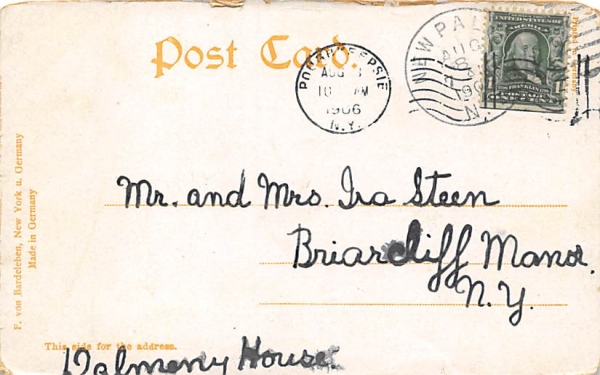 Post Card.
POUGHKEEPSIE
AUG
10 AM
1906
N.Y.
NEW PAL
AUG
190
N.
UNITED STATES OF
AMERICA
FRANKLIN
Mr. and Mrs. Ira Steen
Briarcliff Manor.
N.Y.
Dalmeny House.
This side for the address.
F. von Bardeleben, New York u. Germany
Made in Germany